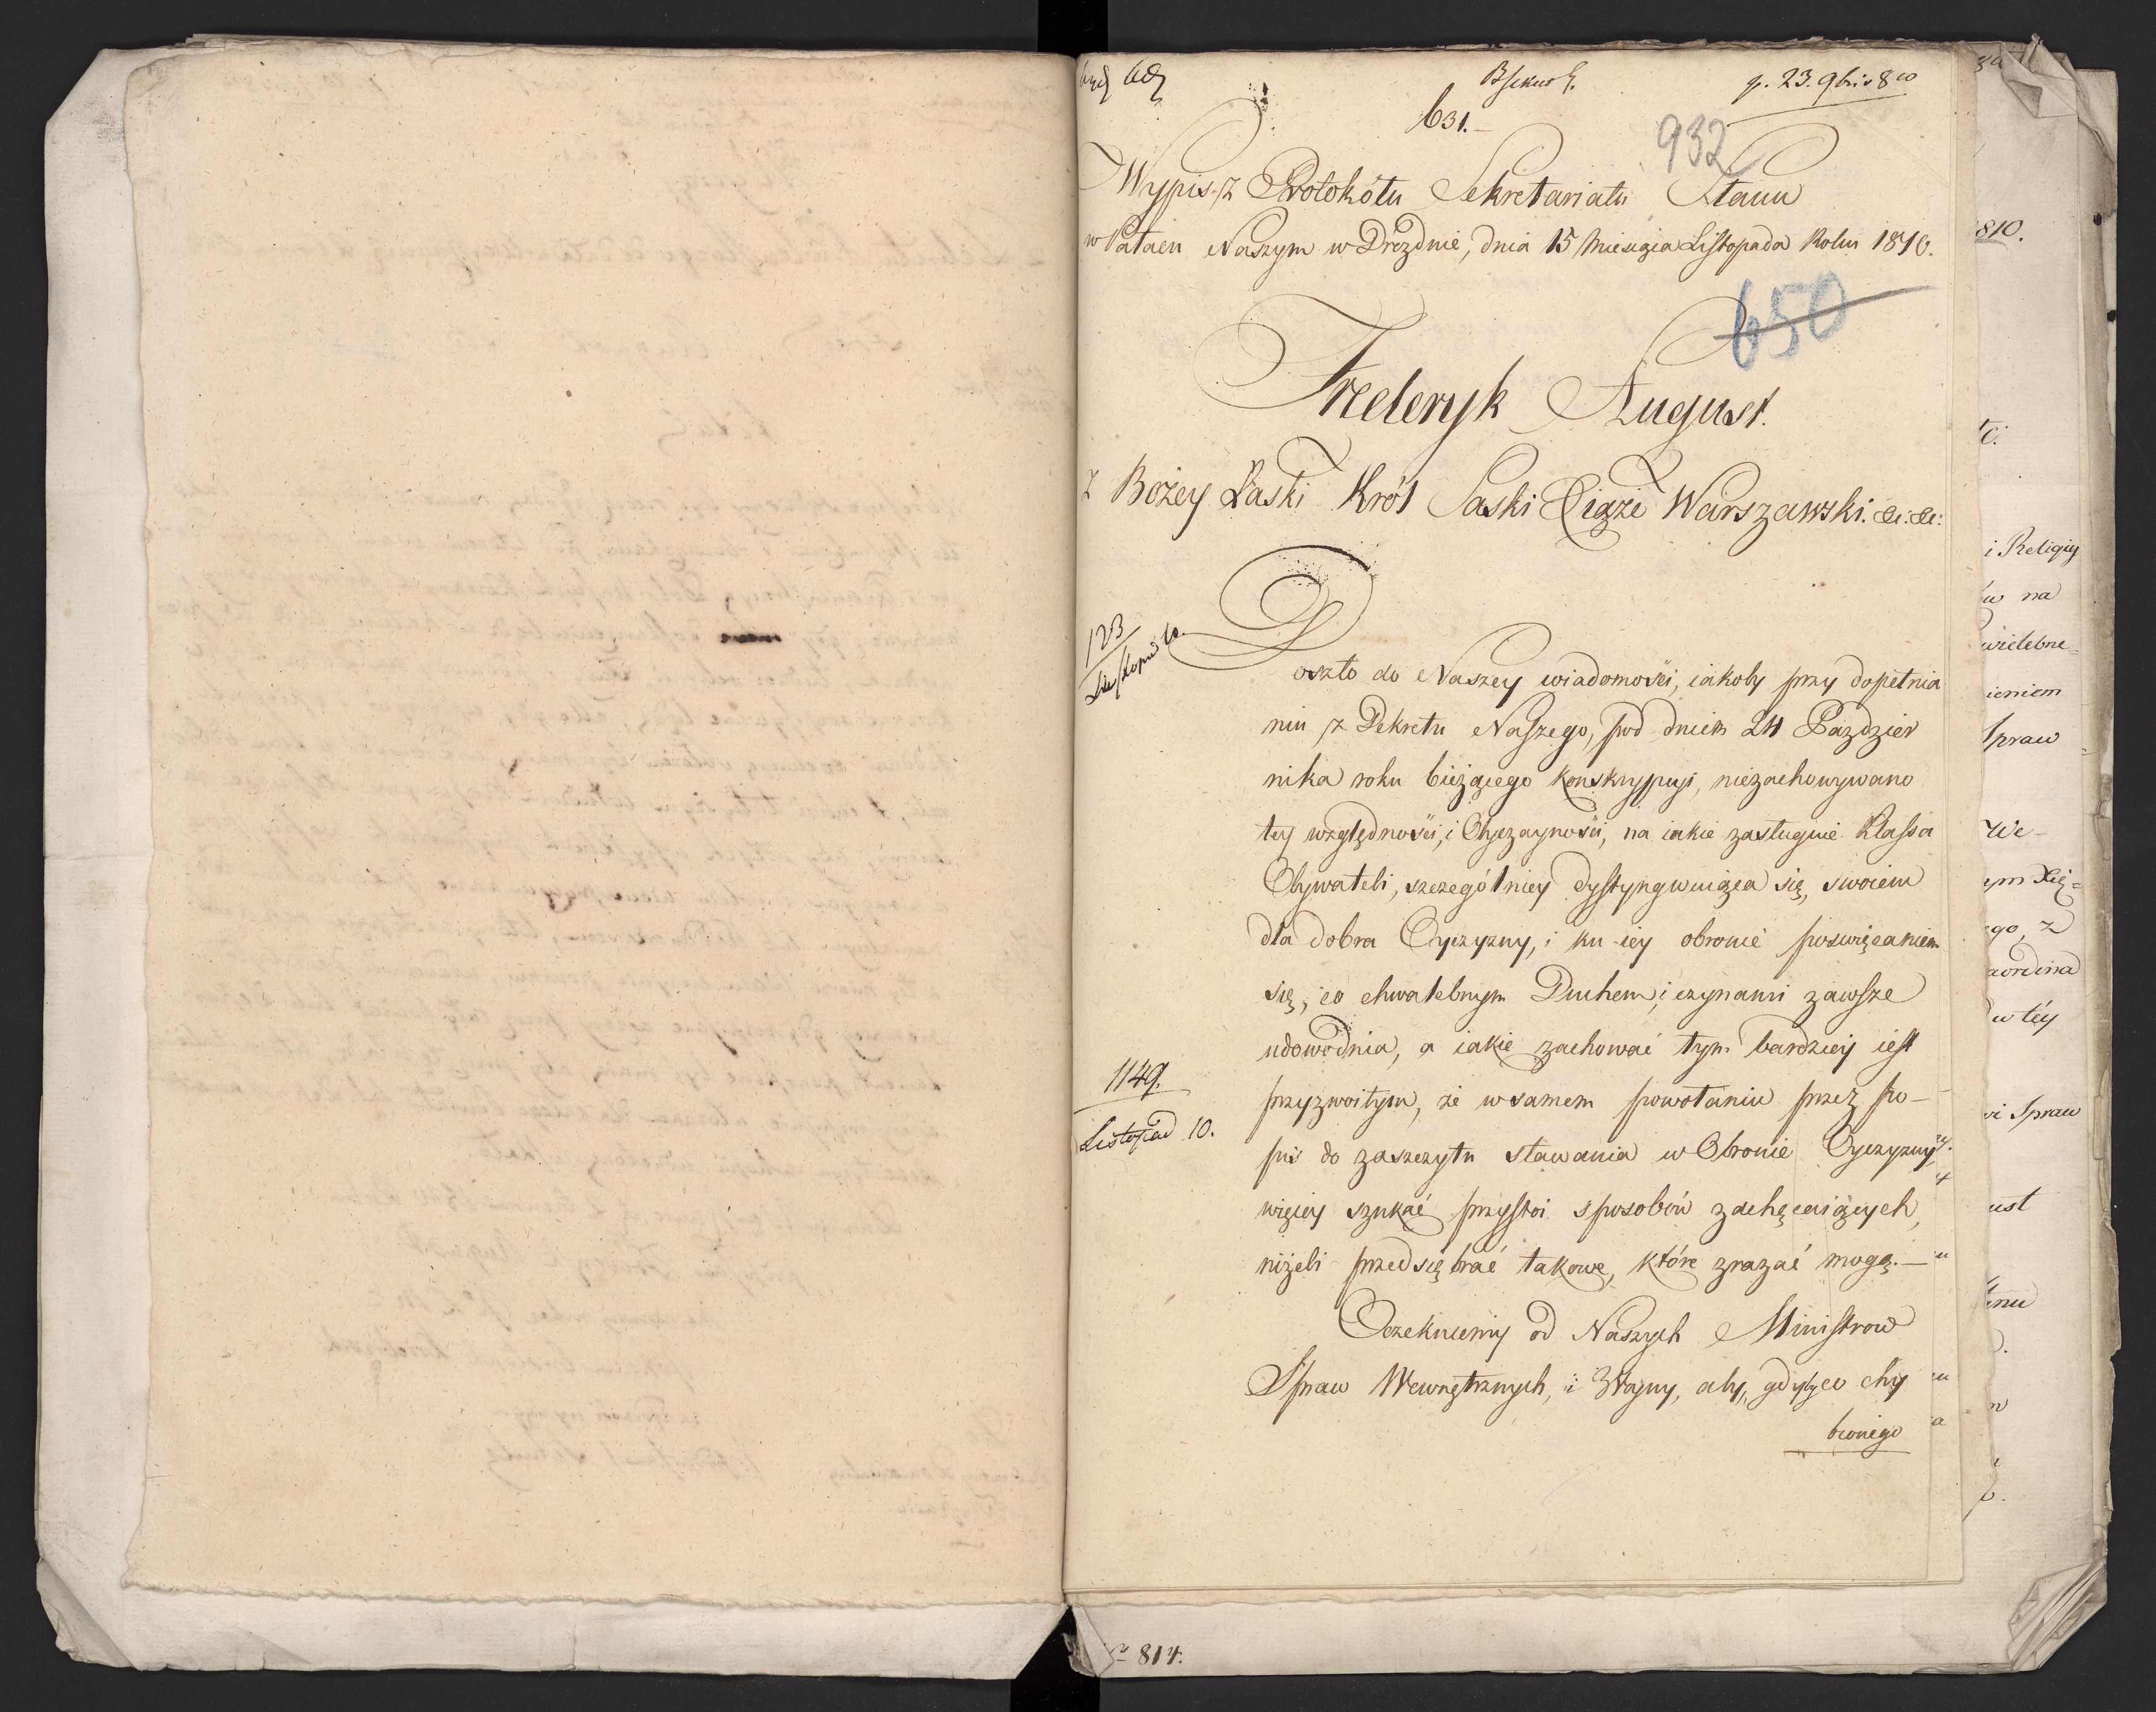 p. 23. 9bris 810
631.
932
Wypis z Protokółu Sekretariatu Stanu
w Pałacu Naszym w Dreźdnie, dnia 15 Miesiąca Listopada Roku 1810.
650
Fryderyk August.
z Bożey Łaski Król Saski Xiąże Warszawski. &c: &c:
123
Listopad 10.
Doszło do Naszey wiadomości, iakoby przy dopełnia
niu z Dekretu Naszego, pod dniem 24 Pazdzier
nika roku bieżącego konskrypcyi, niezachowywano
tey względności, i Obyczayności, na iakie zasługuie Klassa
Obywateli, szczególniey dystyngwuiąca się, swoiem
dla dobra Oyczyzny, i ku iey obronie poswięcaniem
się, co chwalebnym Duchem, i czynami zawsze
udowodnia, a iakie zachować tym bardziey iest
1149.
Listopad 10.
przyzwoitym, że w samem powołaniu przez po-
pis do zaszczytu stawania w Obronie Oyczyzny
więcey szukać przystoi sposobów zachęcaiących,
niżeli przedsiębrać takowe, które zrażać mogą.—
Oczekuiemy od Naszych Ministrow
Spraw Wewnętrznych, i Woyny, aby, gdyby co chy
bionego
814.
810.
i Religiy
w na
wielebne=
ieniem
Spraw
We-
ym Xię=
ego, z
aordina
w téy
wi Spraw
ust
anu